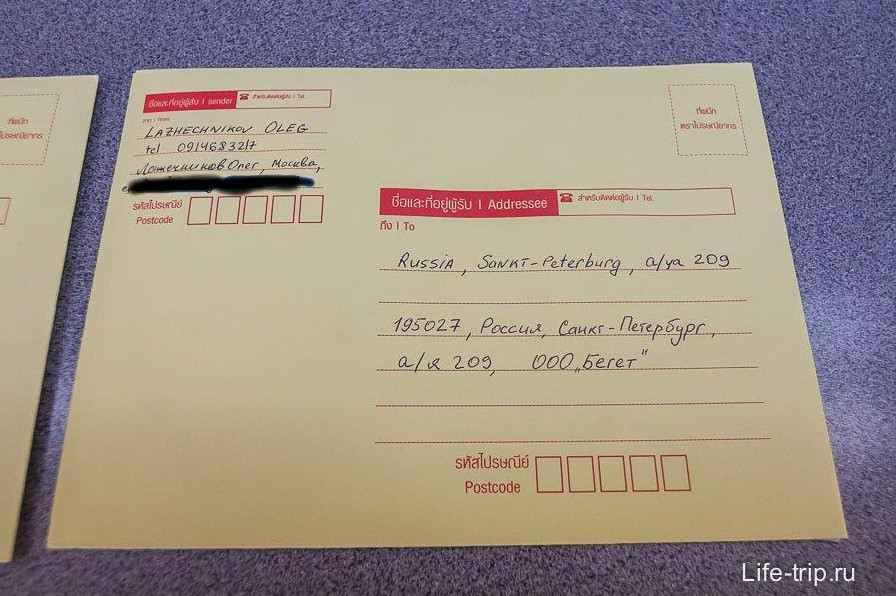 ที่ผนึก
ไปรษณียากร
ชื่อและที่อยู่ผู้ส่ง | sender ☎ สำหรับติดต่อผู้ส่ง | Tel.
จาก | From
LAZHECHNIKOV OLEG
tel 091468321
Лажечников Олег, Москва,
รหัสไปรษณีย์
Postcode
ที่ผนึก
ตราไปรษณียากร
ชื่อและที่อยู่ผู้รับ | Addressee ☎ สำหรับติดต่อผู้รับ | Tel.
ถึง | To
Russia, Sankt-Peterburg, a/ya 209
195027, Россия, Санкт-Петербург,
а/я 209, ООО „Бегет"
รหัสไปรษณีย์
Postcode
Life-trip.ru